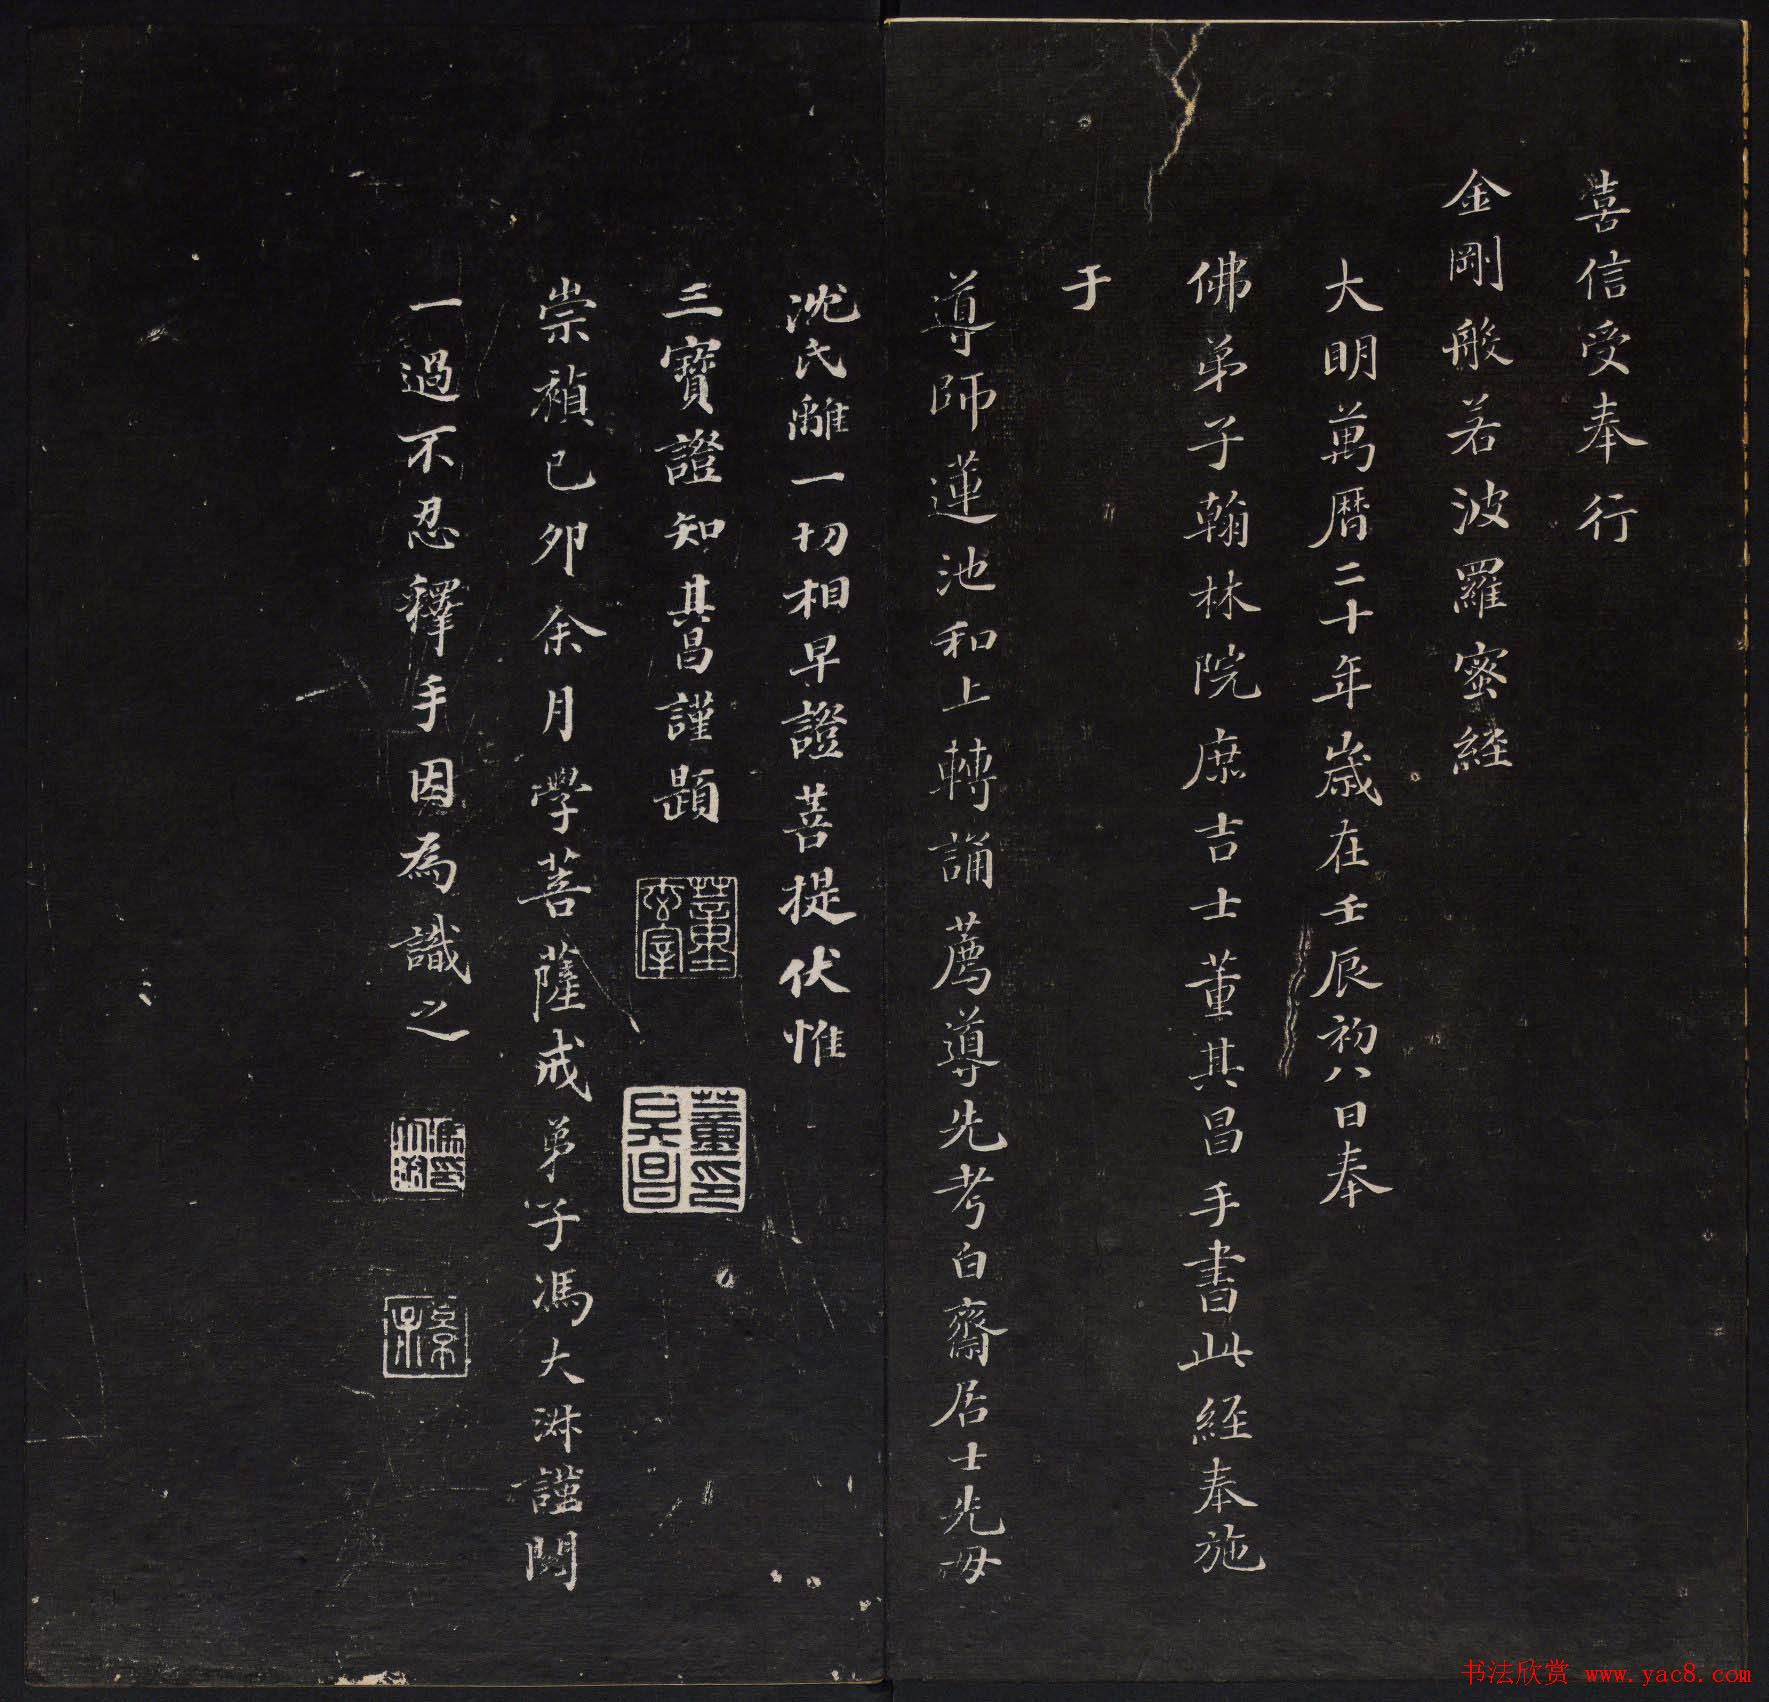 喜信受奉行
金剛般若波羅蜜経
大明萬曆二十年歲在壬辰初八日奉
佛弟子翰林院庶吉士董其昌手書此経奉施
于
導師蓮池和上轉誦薦導先考白齋居士先母
沈氏離一切相早證菩提伏惟
三寶證知其昌謹題
董玄宰
董其昌印
崇禎己卯余月學菩薩戒弟子馮大
謹閱
一過不忍釋手因為識之
书法欣赏 www.yac8.com